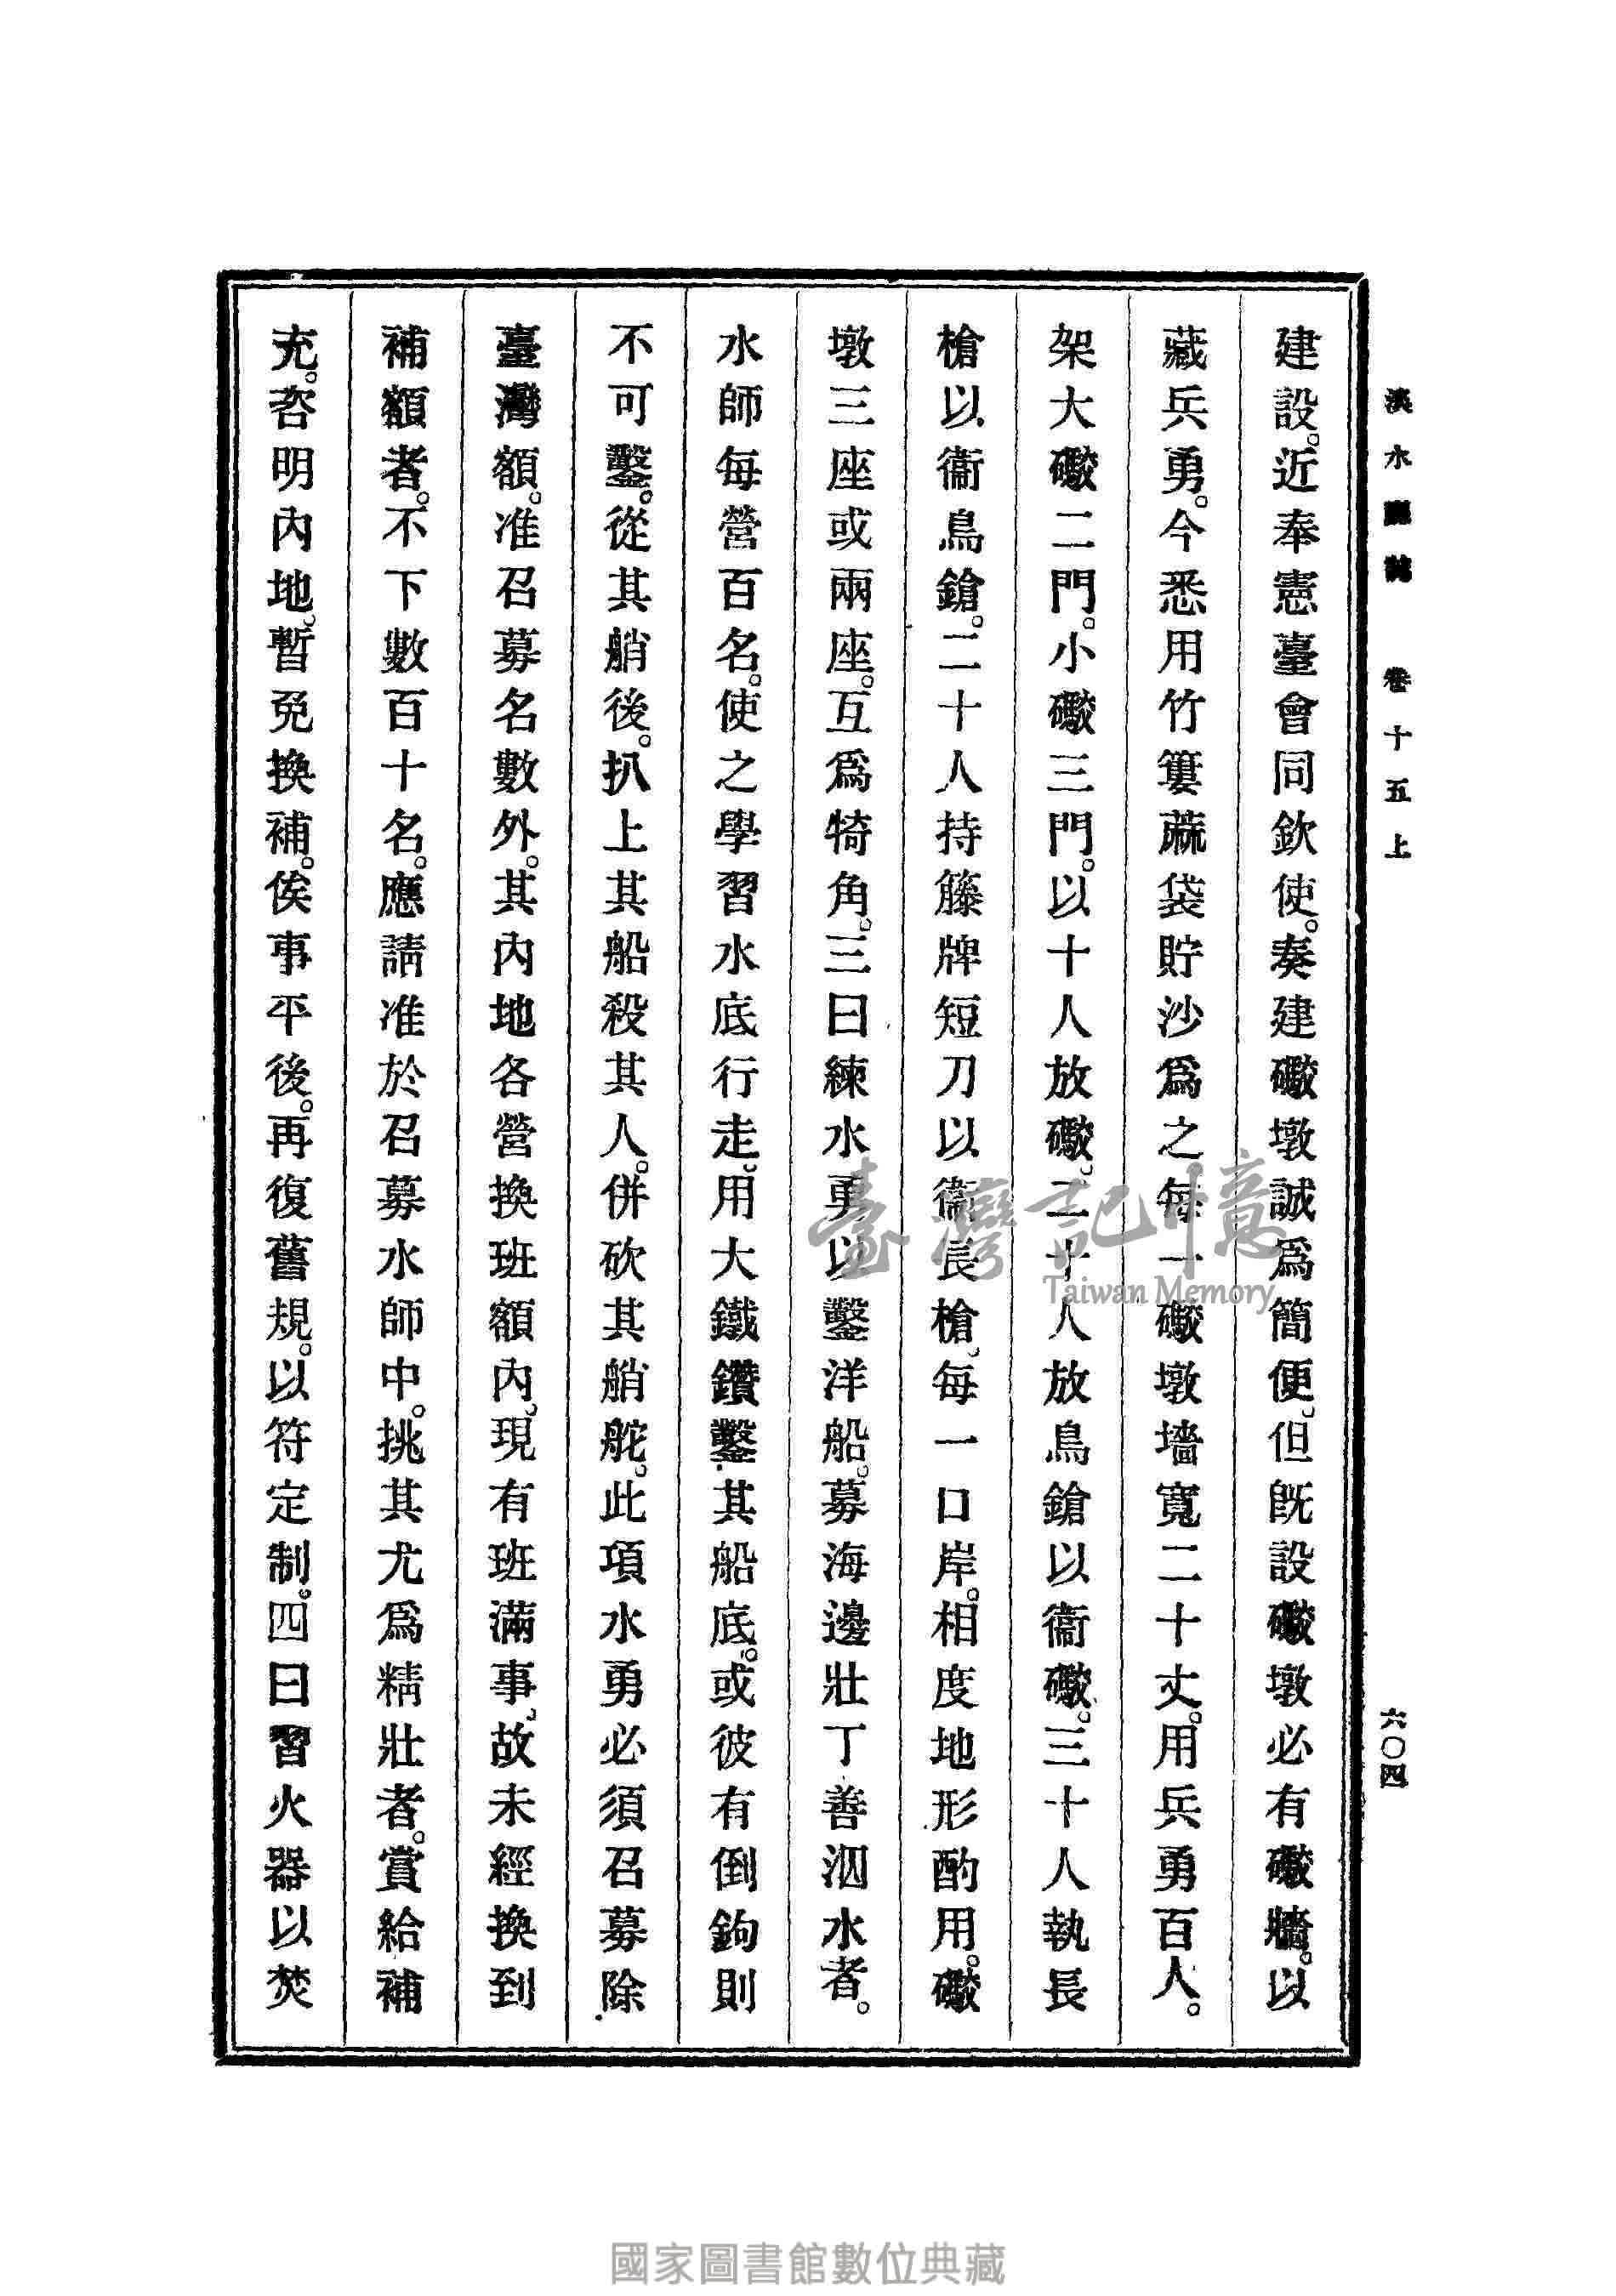 淡水廳志　卷十五上
六〇四
建設。近奉憲臺會同欽使。奏建礮墩誠爲簡便。但既設礮墩必有礮牆。以
藏兵勇。今悉用竹簍蔴袋貯沙爲之每一礮墩墻寬二十丈。用兵勇百人。
架大礮二門。小礮三門。以十人放礮。二十人放鳥鎗以衞礮。三十人執長
槍以衞鳥鎗。二十人持籐牌短刀以衞長槍。每一口岸。相度地形酌用。礮
墩三座或兩座。互爲犄角。三曰練水勇以鑿洋船。募海邊壯丁善泅水者。
水師每營百名。使之學習水底行走。用大鐵鑽鑿其船底。或彼有倒鉤則
不可鑿。從其艄後。扒上其船殺其人。併砍其艄舵。此項水勇必須召募除
臺灣額。准召募名數外。其內地各營換班額內。現有班滿事故未經換到
補額者。不下數百十名。應請准於召募水師中。挑其尤爲精壯者。賞給補
充。咨明內地。暫免換補。俟事平後。再復舊規。以符定制。四曰習火器以焚
臺灣記憶
Taiwan Memory
國家圖書館數位典藏